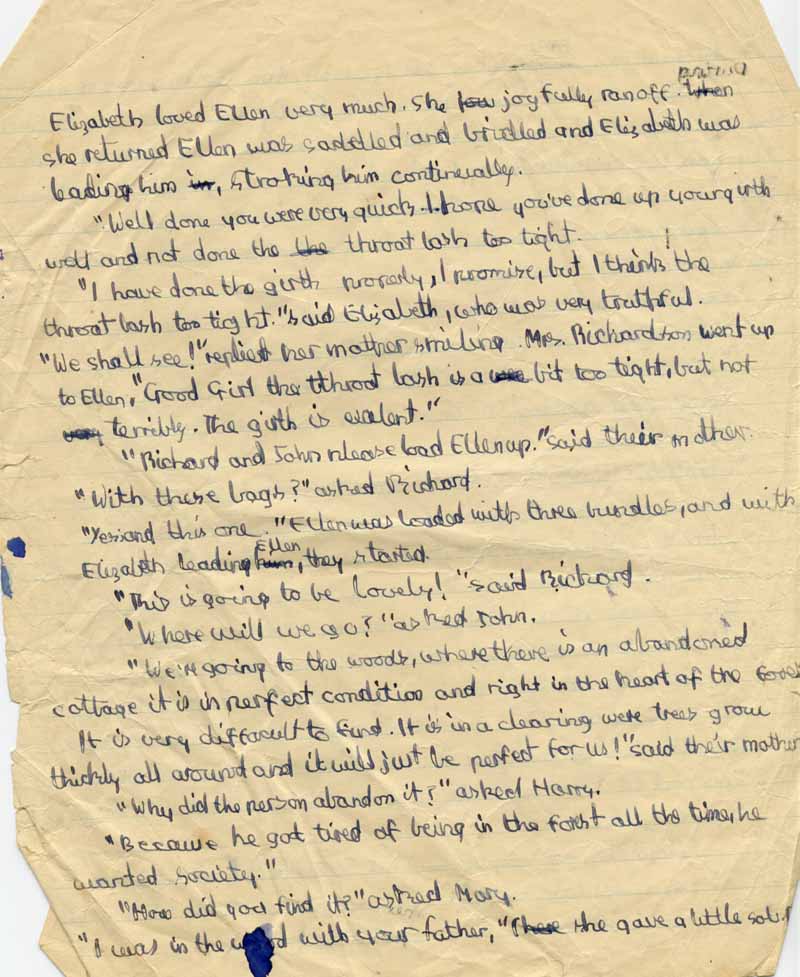 Elizabeth loved Ellen very much. She joyfully ran off. When
she returned Ellen was sadelled and bridled and Elizabeth was
leading him in, stroking him continually.
"Well done you were very quick. I hope you've done up your girth
well and not done the the throat lash too tight.
"I have done the girth properly, I promise, but I think the
throat lash too tight." said Elizabeth, who was very truthful.
"We shall see!" replied her mother smiling. Mrs. Richardson went up
to Ellen, "Good Girl the tthroat lash is a bit too tight, but not
very terribly. The girth is exelent."
"Richard and John please load Ellen up." said their mother.
"With these bags?" asked Richard.
"Yes and this one." Ellen was loaded with three bundles, and with
Ellen
Elizabeth leading him, they started.
"This is going to be lovely!" said Richard.
"Where will we go?" asked John.
"We're going to the woods, where there is an abandoned
cottage it is in perfect condition and right in the heart of the
It is very difficult to find. It is in a clearing were trees grow
thickly all around and it will just be perfect for us!" said their mother
"Why did the person abandon it?" asked Harry.
"Because he got tired of being in the forest all the time, he
wanted society."
"How did you find it?" asked Mary.
"I was in the with your father, "There she gave a little sob